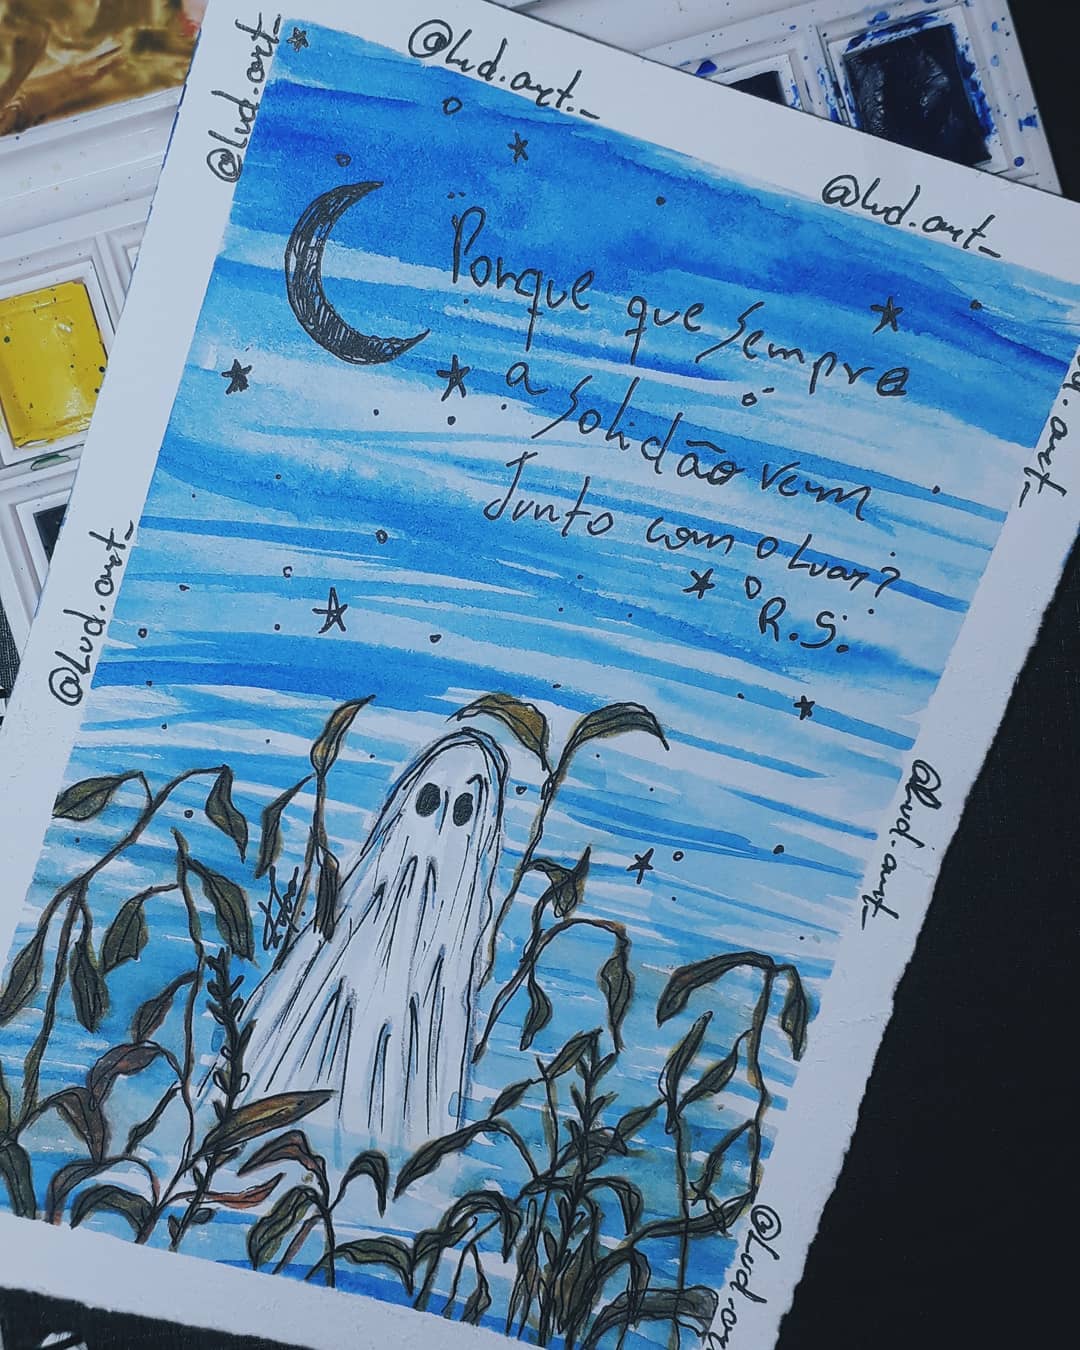 @Lud.art_
@Lud.art_
@Lud.art_
Porque que sempre
a solidão vem
Junto com o Luar?
R.S.
@Lud.art_
d.art_
@Lud.art_
@Lud.ar